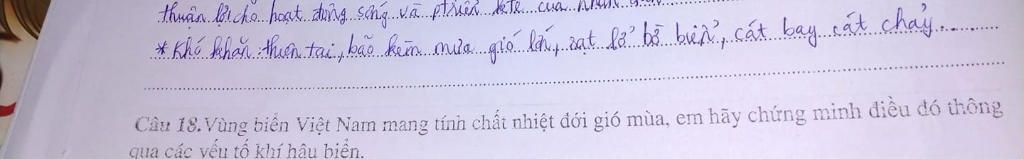 thuận lợi cho hoạt động sống và của nhân
* Khó khăn: thiên tai, bão kèm mưa gió lớn, sạt lở bờ biển, cát bay cát chảy..........
Câu 18. Vùng biển Việt Nam mang tính chất nhiệt đới gió mùa, em hãy chứng minh điều đó thông
qua các yếu tố khí hậu biển.